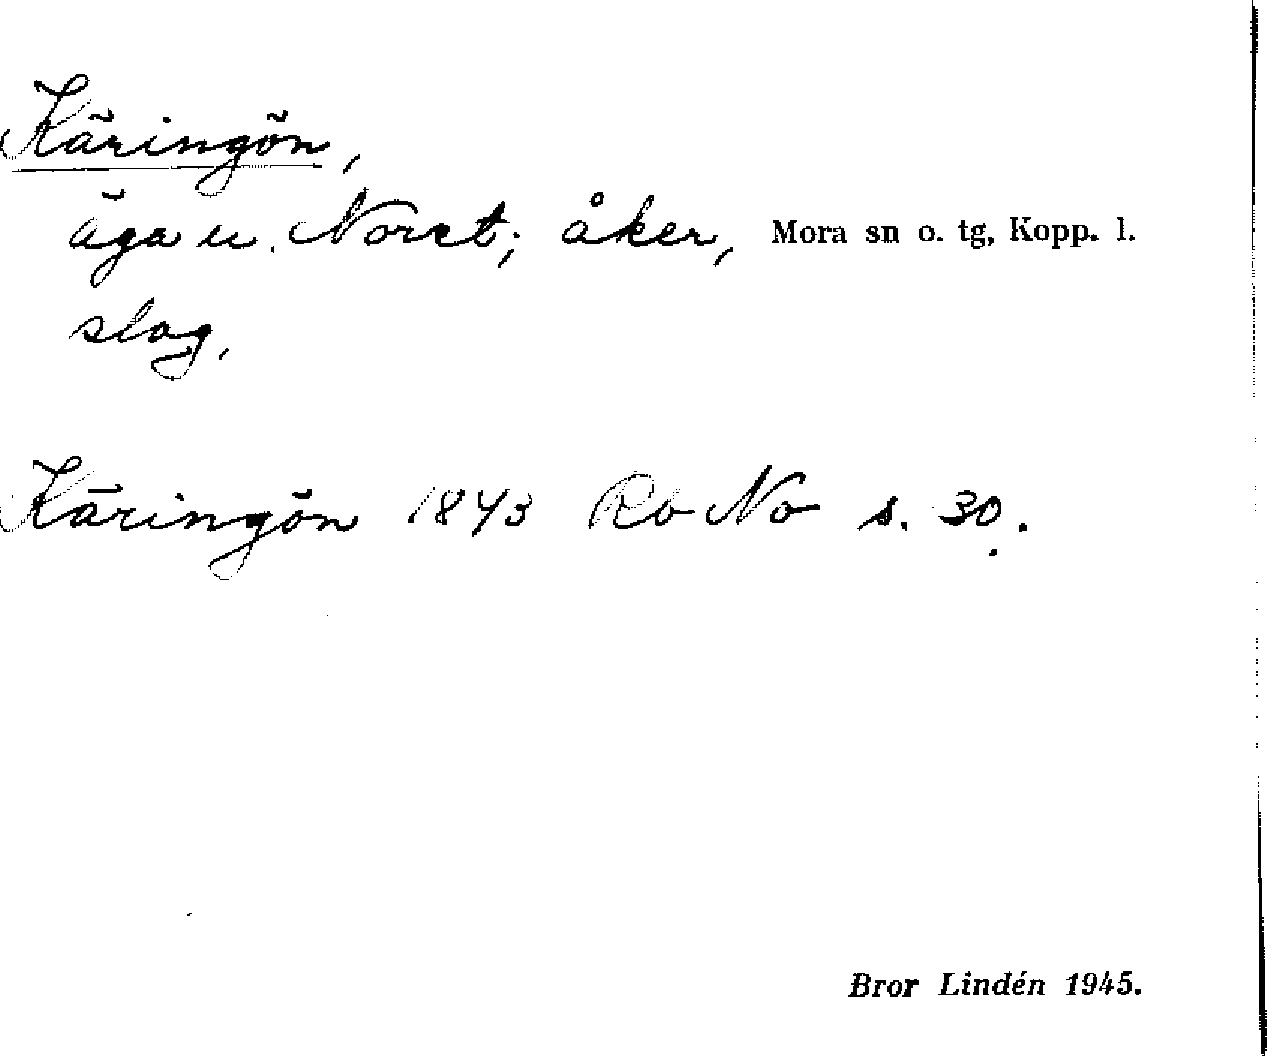 Käringön,
äga u. Noret; åker, Mora sn o. tg, Kopp. l.
slog,
Käringön 1843 Rb No s. 30.
Bror Lindén 1945.